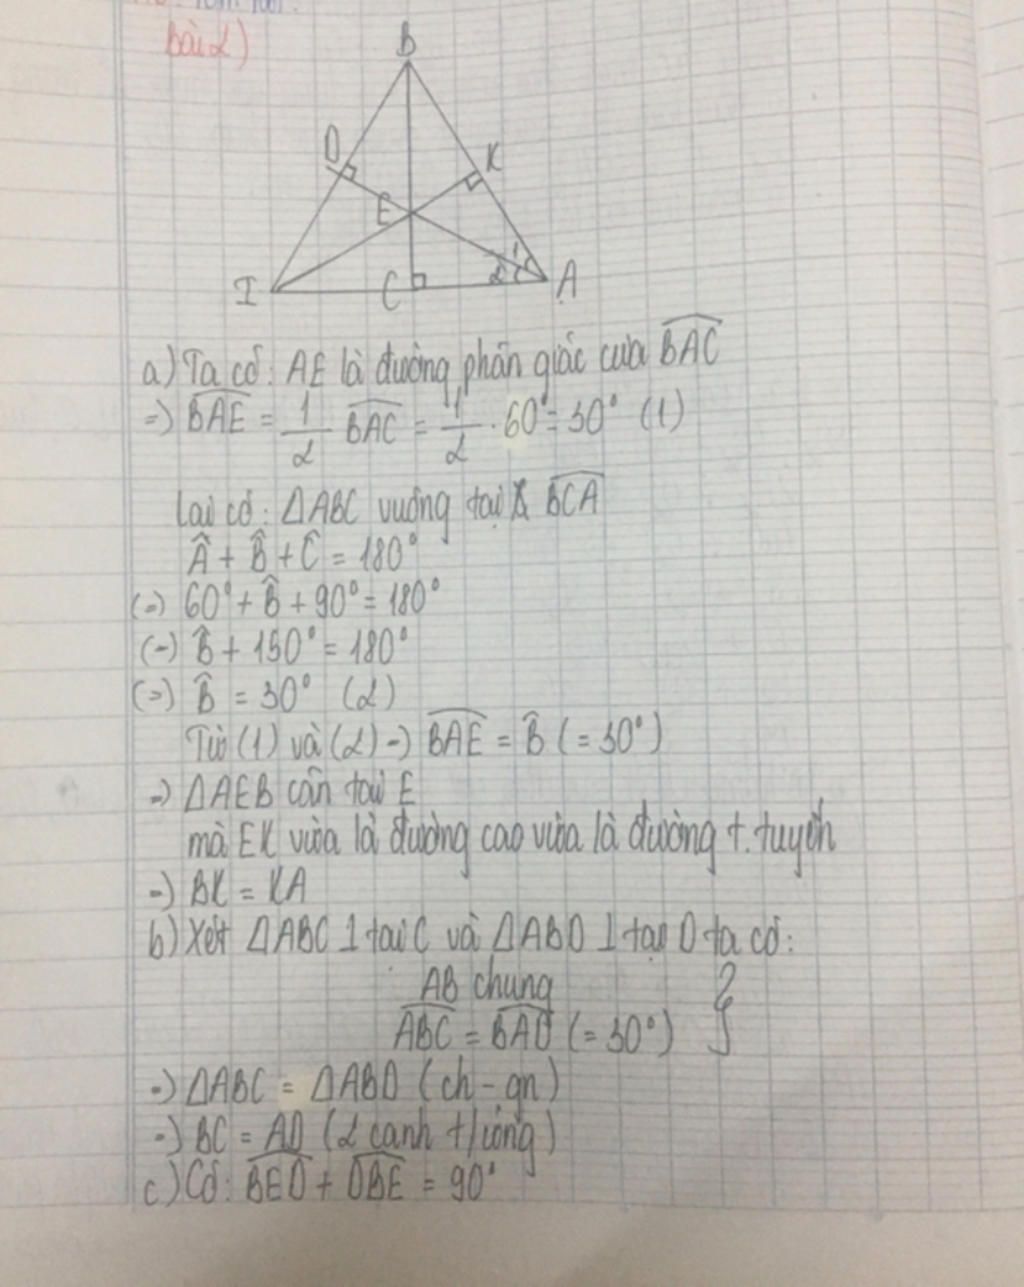 bài 2)
B
D
K
E
1
2
I
C
A
a) Ta có: AE là đường phân giác của BAC
=) BAE = 1/2 BAC = 1/2 . 60° = 30° (1)
Lại có: ΔABC vuông tại BCA
Â + B̂ + Ĉ = 180°
(=) 60° + B̂ + 90° = 180°
(=) B̂ + 150° = 180°
(=) B̂ = 30° (2)
Từ (1) và (2) =) BAE = B̂ (= 30°)
=) ΔAEB cân tại E
mà EK vừa là đường cao vừa là đường t. tuyến
=) BK = KA
b) Xét ΔABC ⊥ tại C và ΔABD ⊥ tại D ta có:
AB chung
ABC = BAD (= 30°) }
=) ΔABC = ΔABD (ch - gn)
=) BC = AD (2 cạnh t/ứng)
c) Có: BED + DBE = 90°